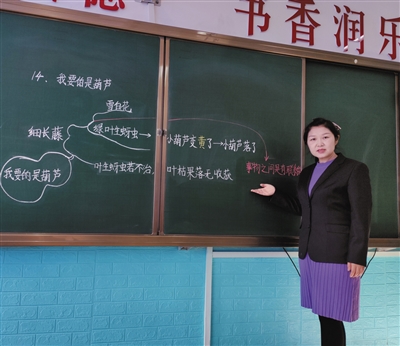 书香润乐
14、我要的是葫芦
雪白花
细长藤
绿叶生蚜虫
小葫芦变黄了→小葫芦落了
我要的是葫芦
叶生蚜虫若不治
叶枯果落无收获
事物之间是有联